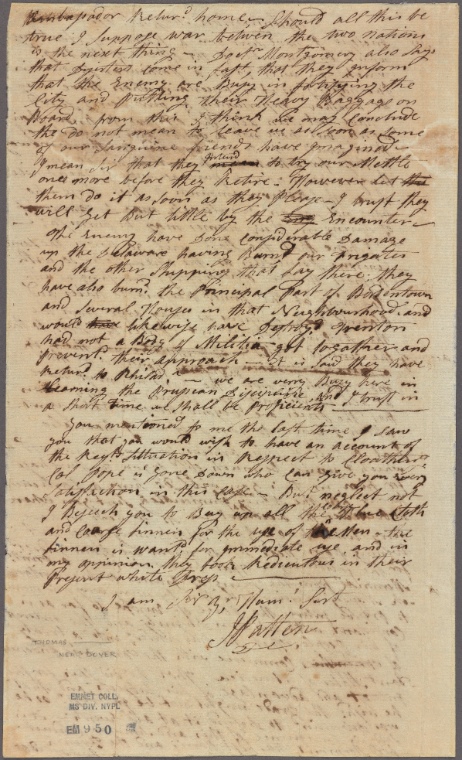 Ambasador Return'd home — Should all this be
true I suppose war between the two nations
is the next thing — Doctr Montgomery also says
that Deserters come in fast, that they inform
that the Enemy are Busy in fortifying the
City and Putting their Heavy Baggage on
Board from this I think we may Conclude
the do not mean to leave us so soon as some
of our Sanguine friends have imagined
I mean Sir that they intend to try our Mettle
once more before they Retire — However let
them do it as soon as they Please — I trust they
will Get But little by the Encounter —
The Enemy have Done considerable Damage
up the Delaware having Burnd our frigates
and the other Shipping that Lay there. They
have also burnd the Principal Part of Bodentown
and Several Houses in that Neighbourhood and
would likewise have Destroyd Trenton
had not a Body of Militia got together and
prevent their approach — It is said they have
Return'd to Philad — we are very Busy here in
learning the Prussian Discipline and I trust in
a Short time we shall be Proficients —
You mentioned to me the last time I saw
you that you would wish to have an account of
the Regts Situation in Respect to Cloathing
Col Pope is Gone Down who can give you every
Satisfaction in this Case — But neglect not
I Beseech you to Buy up all the Blue Cloth
and coarse linnen for the use of the Men — the
linnen is wanted for immediate use and in
my opinnion they look Rediculous in their
Present whole Dress
I am Sir Yr Hum! Servt
J Patten
EMMET COLL.
MS DIV. NYPL
EM 950